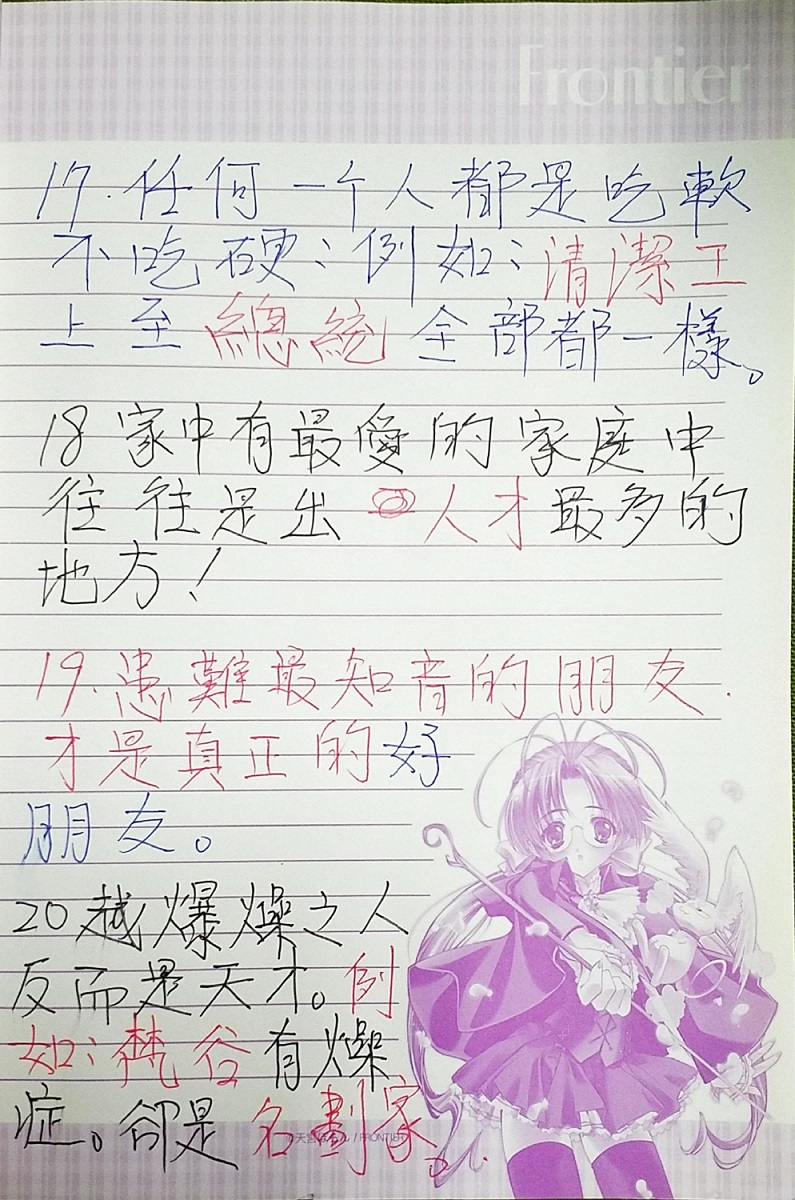 Frontier
17.任何一个人都是吃軟
不吃硬:例如:清潔工
上至總統全部都一樣。
18家中有最愛的家庭中
往往是出人才最多的
地方!
19.患難最知音的朋友.
才是真正的好
朋友。
20越爆燥之人
反而是天才。例
如:梵谷有燥
症。卻是名劃家。